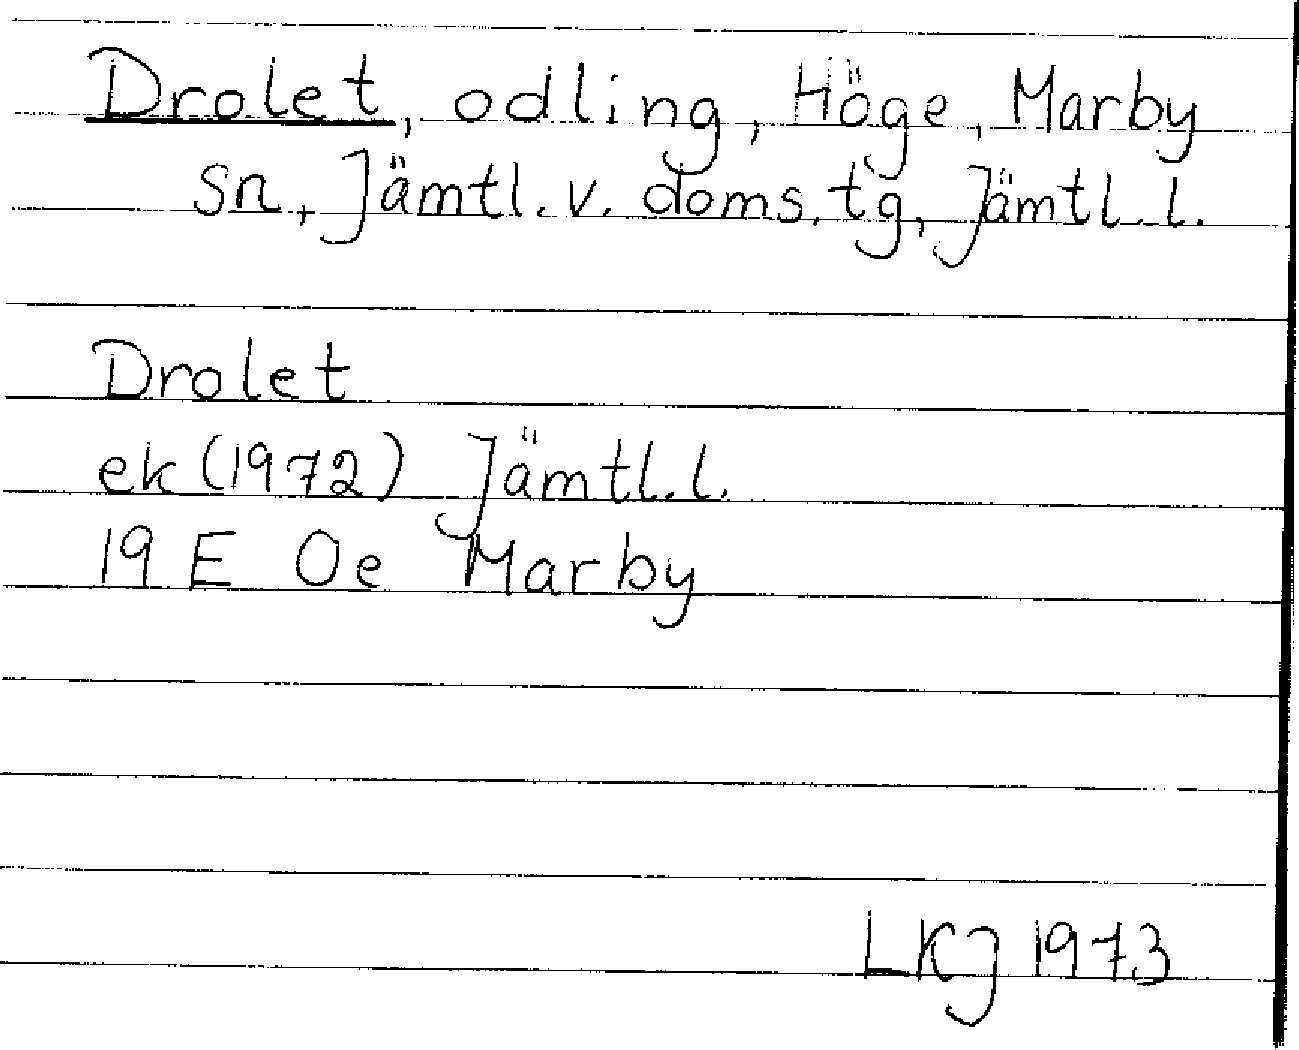 Drolet, odling, Höge, Marby
sn, Jämtl. v. doms. tg, Jämtl. l.
Drolet
ek (1972) Jämtl. l.
19 E 0e Marby
LKJ 1973